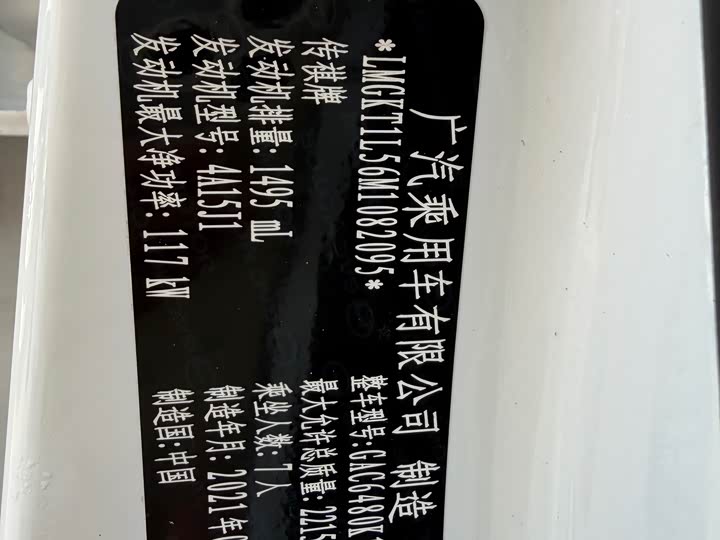 广汽乘用车有限公司 制造
*LMGKT1L56M1082095*
传祺牌
整车型号:GAC6480K
发动机排量: 1495 mL
最大允许总质量: 2215
发动机型号: 4A15J1
乘坐人数: 7人
发动机最大净功率: 117 kW
制造年月: 2021年
制造国: 中国